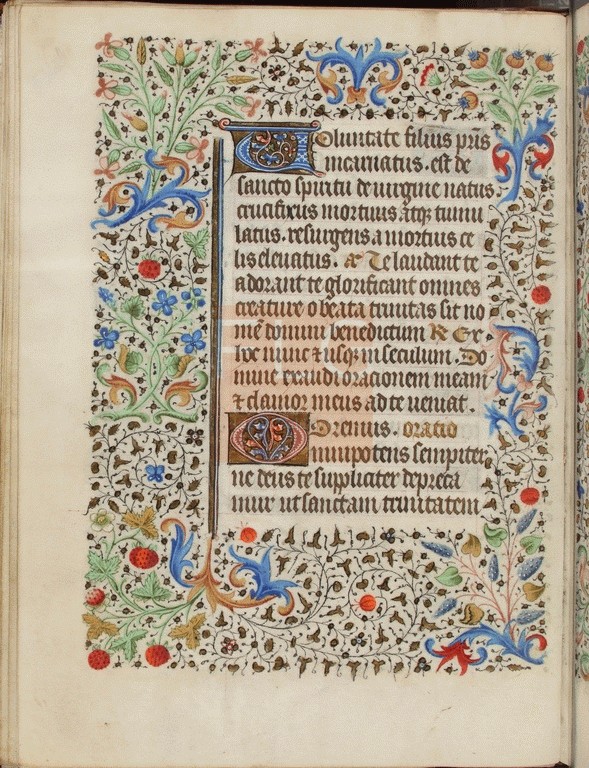 Voluntate filius pr̄is
incarnatus. est de
sancto spiritu de uirgine natus.
crucifixus mortuus atq; tumu
latus. resurgens a mortuis ce
lis eleuatus. Te laudant te
adorant te glorificant omnes
creature o beata trinitas sit no
mē domini benedictum Ex
hoc nunc ⁊ usq; in seculum. Do
mine exaudi orationem meam
⁊ clamor meus ad te ueniat.
Oremus. oratio
Omnipotens sempiter
ne deus te suppliciter depreca
mur ut sanctam trinitatem